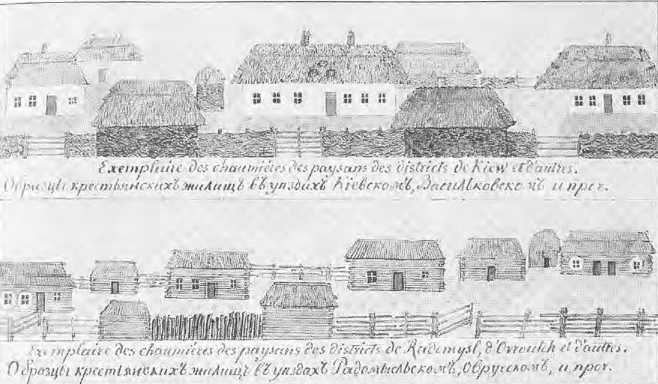 Exemplaire des chaumières des paysans des districts de Kiew et d'autres.
Образцы крестьянскихъ жилищъ въ уѣздахъ Кіевскомъ, Васильковскомъ и проч.
Exemplaire des chaumières des paysans des districts de Rademysl, d'Ovroutch et d'autres.
Образцы крестьянскихъ жилищъ въ уѣздахъ Радомысльскомъ, Овручскомъ, и проч.